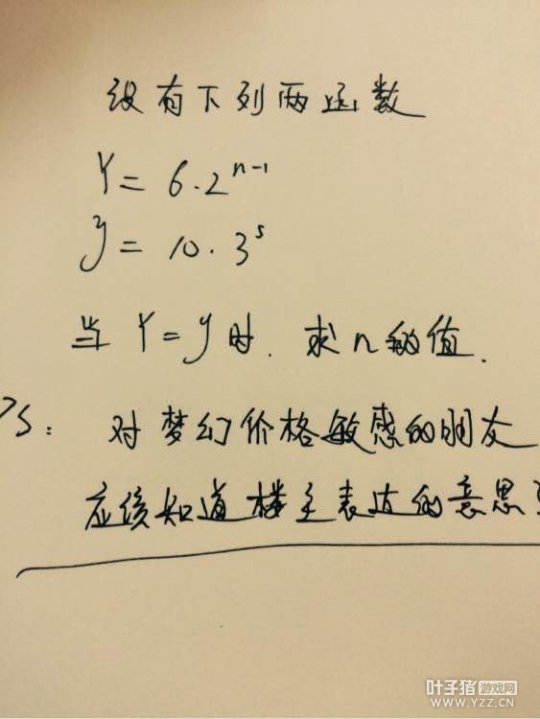 设有下列两函数
Y = 6·2ⁿ⁻¹
y = 10·3⁵
当 Y = y 时. 求 n 的值.
PS: 对梦幻价格敏感的朋友
应该知道楼主表达的意思
叶子猪游戏网
WWW.YZZ.CN